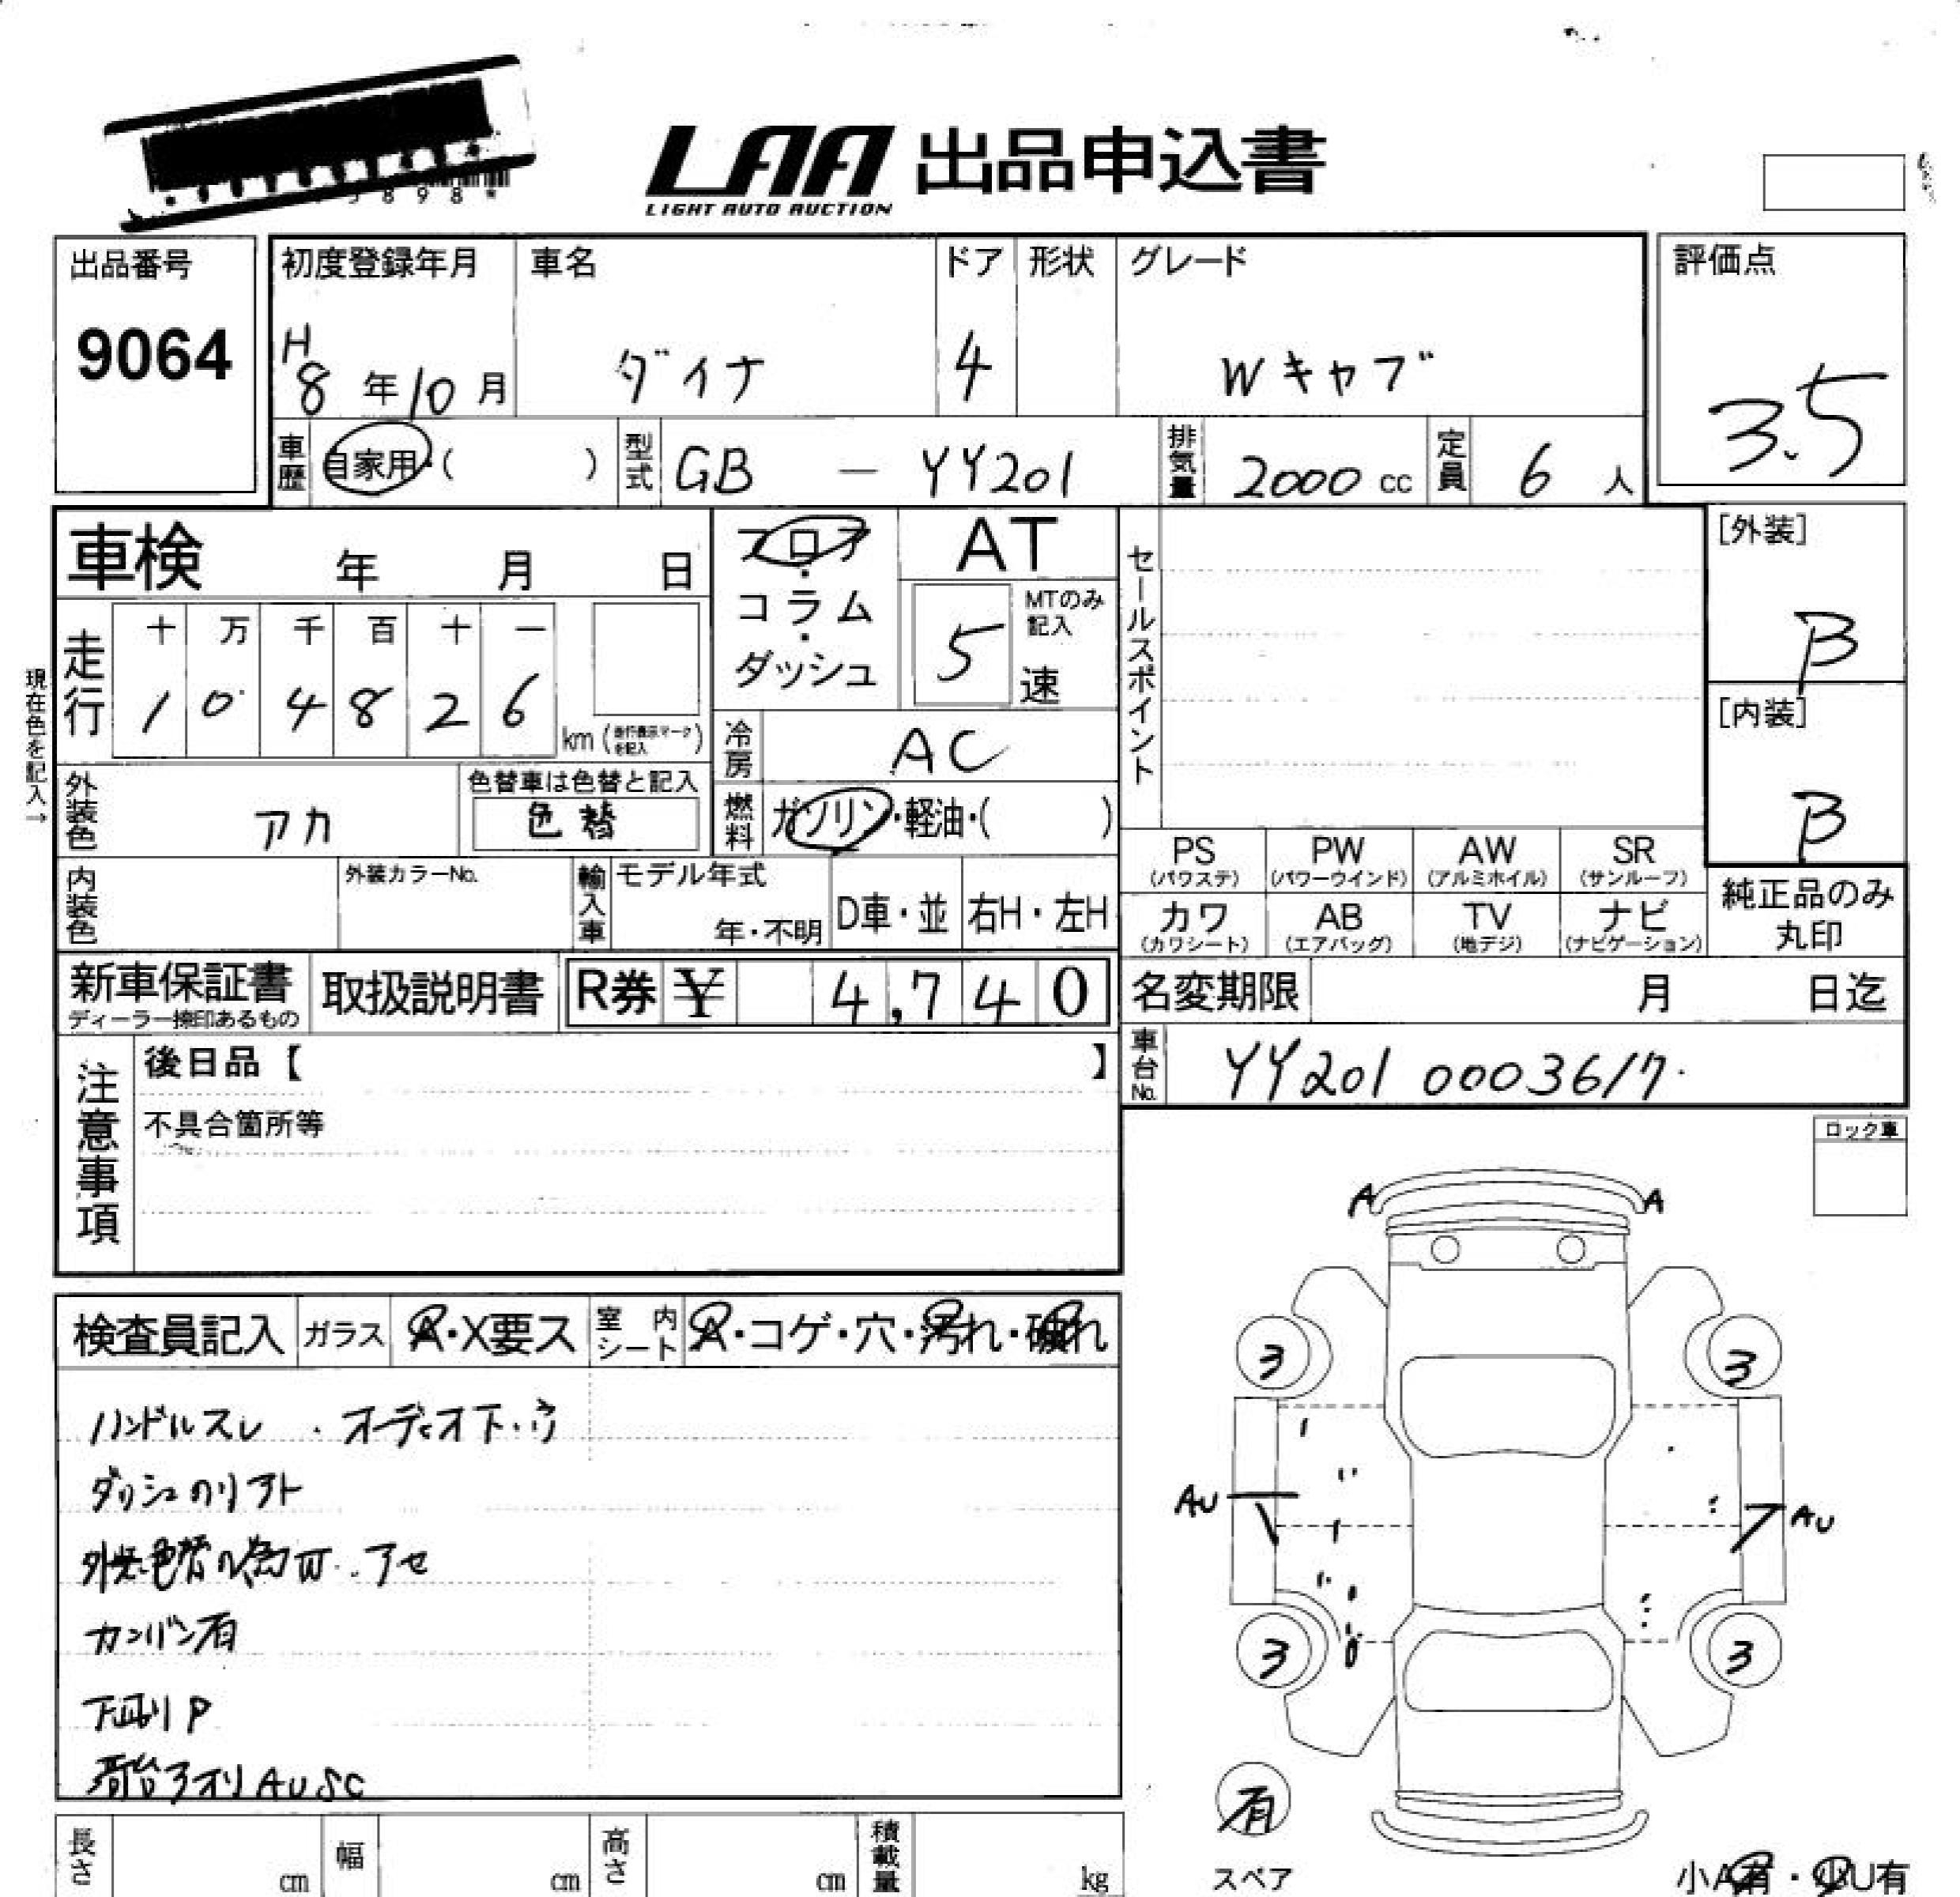 5898*
LAA 出品申込書
LIGHT AUTO AUCTION
出品番号
9064
初度登録年月
H
8 年 10 月
車名
ダイナ
ドア
4
形状
グレード
Wキャブ
評価点
3.5
車歴
自家用・( )
型式
GB — YY201
排気量
2000 cc
定員
6 人
車検 年 月 日
フロア・コラム・ダッシュ
AT
5
MTのみ記入
速
セールスポイント
[外装]
B
[内装]
B
現在色を記入→
走行
十 万 千 百 十 一
1 0 4 8 2 6
km (走行表示マークを記入)
冷房
AC
外装色
アカ
色替車は色替と記入
色替
燃料
ガソリン・軽油・( )
PS (パワステ)
PW (パワーウインド)
AW (アルミホイル)
SR (サンルーフ)
内装色
外装カラーNo.
輸入車
モデル年式
年・不明
D車・並
右H・左H
カワ (カワシート)
AB (エアバッグ)
TV (地デジ)
ナビ (ナビゲーション)
純正品のみ
丸印
新車保証書
ディーラー捺印あるもの
取扱説明書
R券 ¥ 4,740
名変期限 月 日迄
車台No.
YY201 0003617
注意事項
後日品【 】
不具合箇所等
ロック車
A A
検査員記入
ガラス
A・X要ス
室内シート
A・コゲ・穴・汚れ・破れ
3 3
ハンドルスレ ・オーディオ下
AU AU
カンバン有
3 3
AU
有
スペア
小A有・小U有
長さ cm
幅 cm
高さ cm
積載量 kg